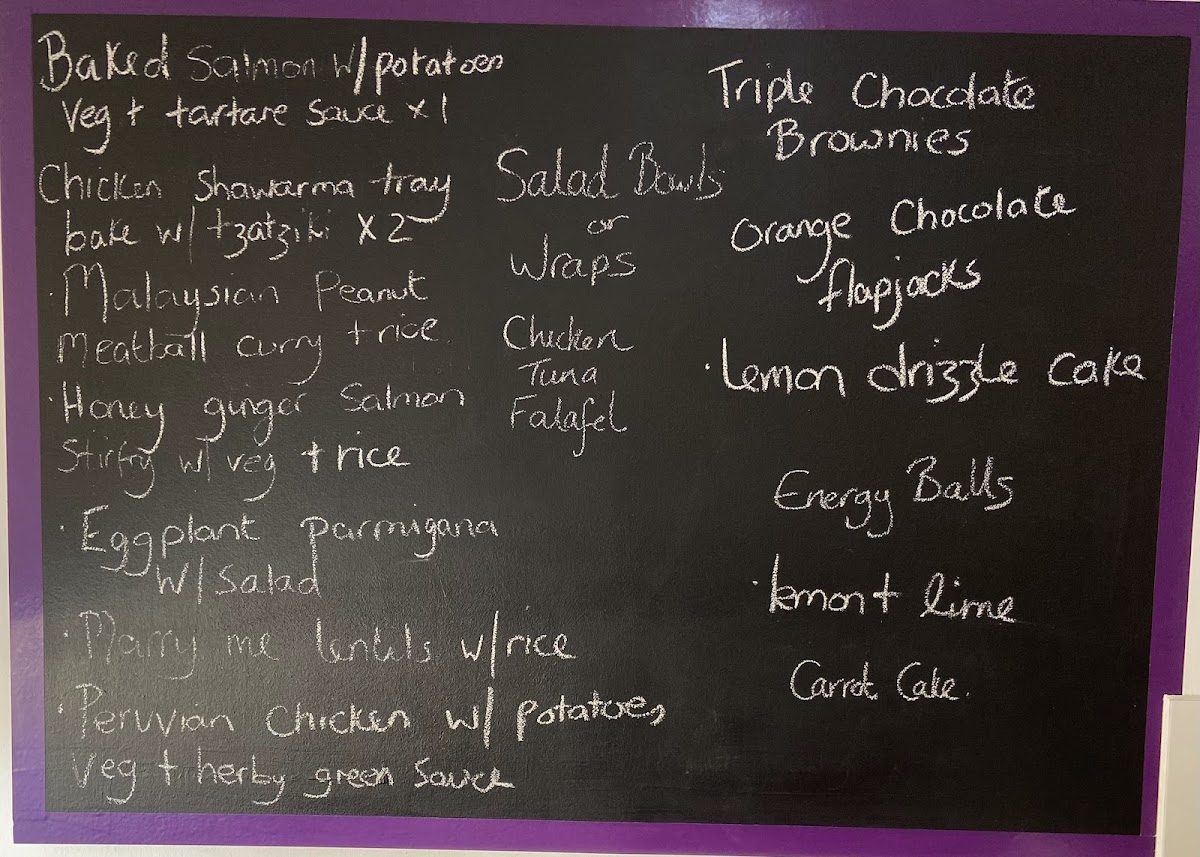 Baked Salmon w/potatoes
Veg + tartare sauce x1
Chicken Shawarma tray
bake w/ tzatziki x2
· Malaysian Peanut
Meatball curry + rice
· Honey ginger Salmon
Stirfry w/ veg + rice
· Eggplant parmigana
w/ Salad
· Marry me lentils w/rice
· Peruvian Chicken w/ potatoes,
Veg + herby green sauce
Salad Bowls
or
Wraps
Chicken
Tuna
Falafel
Triple Chocolate
Brownies
Orange Chocolate
flapjacks
· lemon drizzle cake
Energy Balls
· lemon + lime
Carrot Cake.